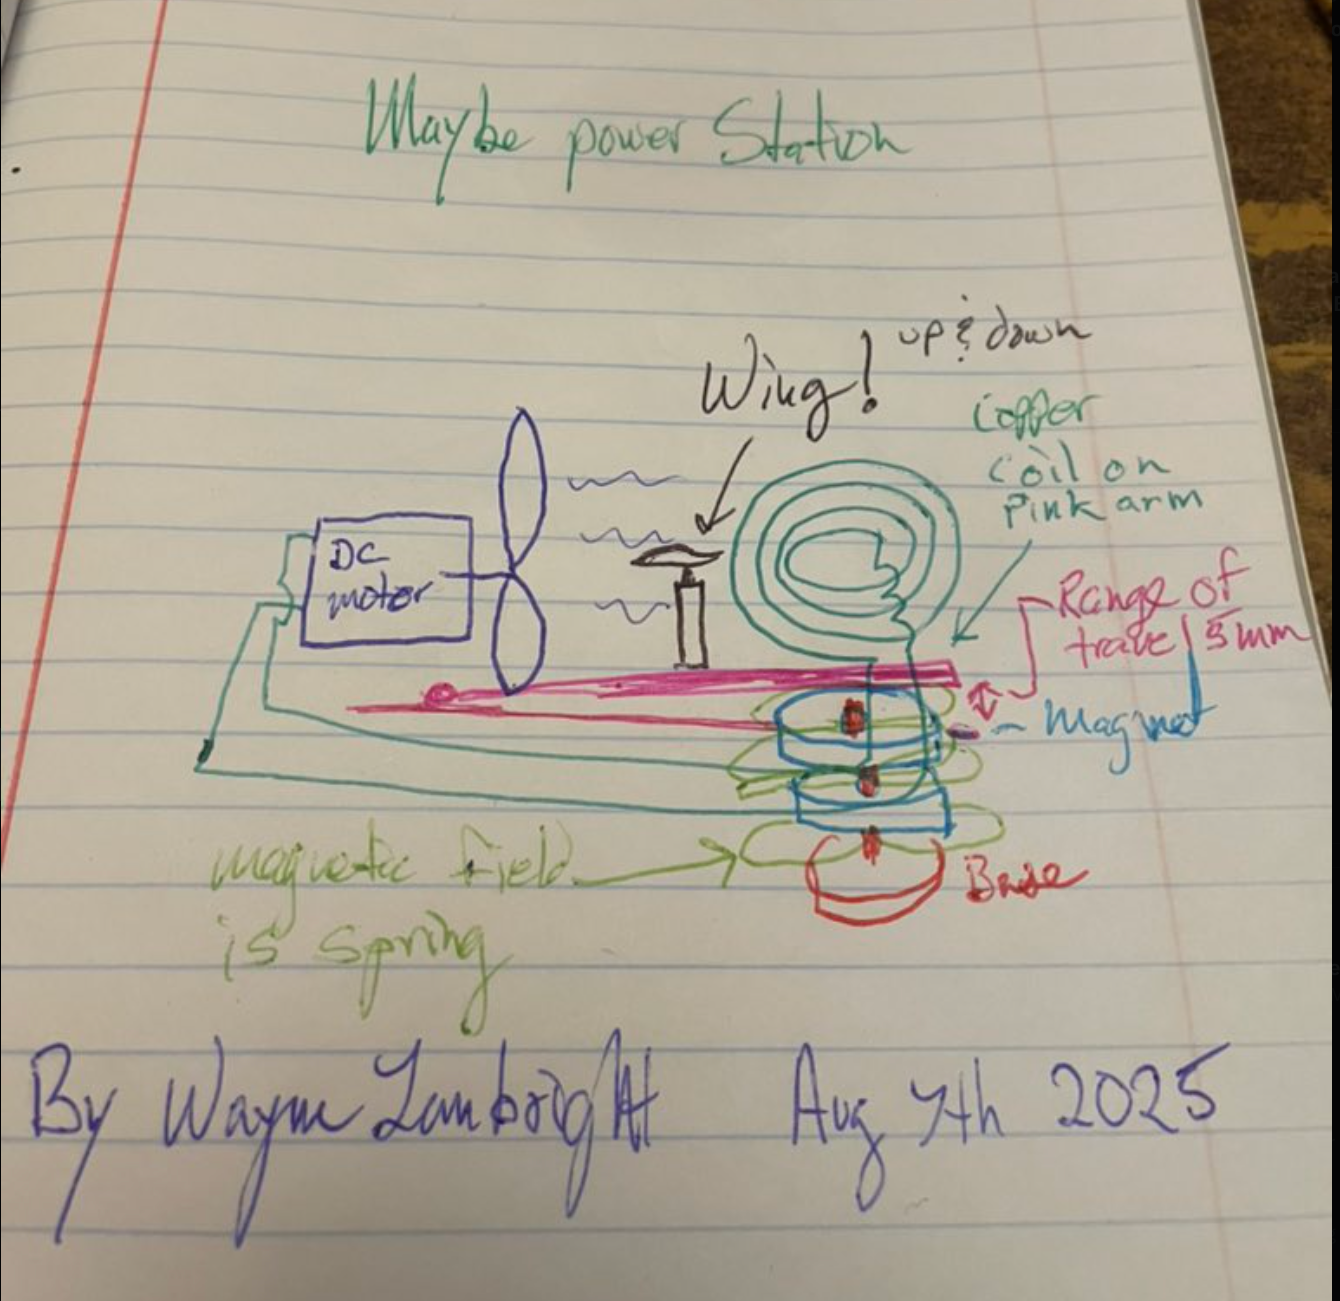 Maybe power Station
Wing! up & down
Copper
coil on
pink arm
DC
motor
Range of
travel 5mm
Magnet
magnetic field
is spring
Base
By Wayne Lambright Aug 7th 2025